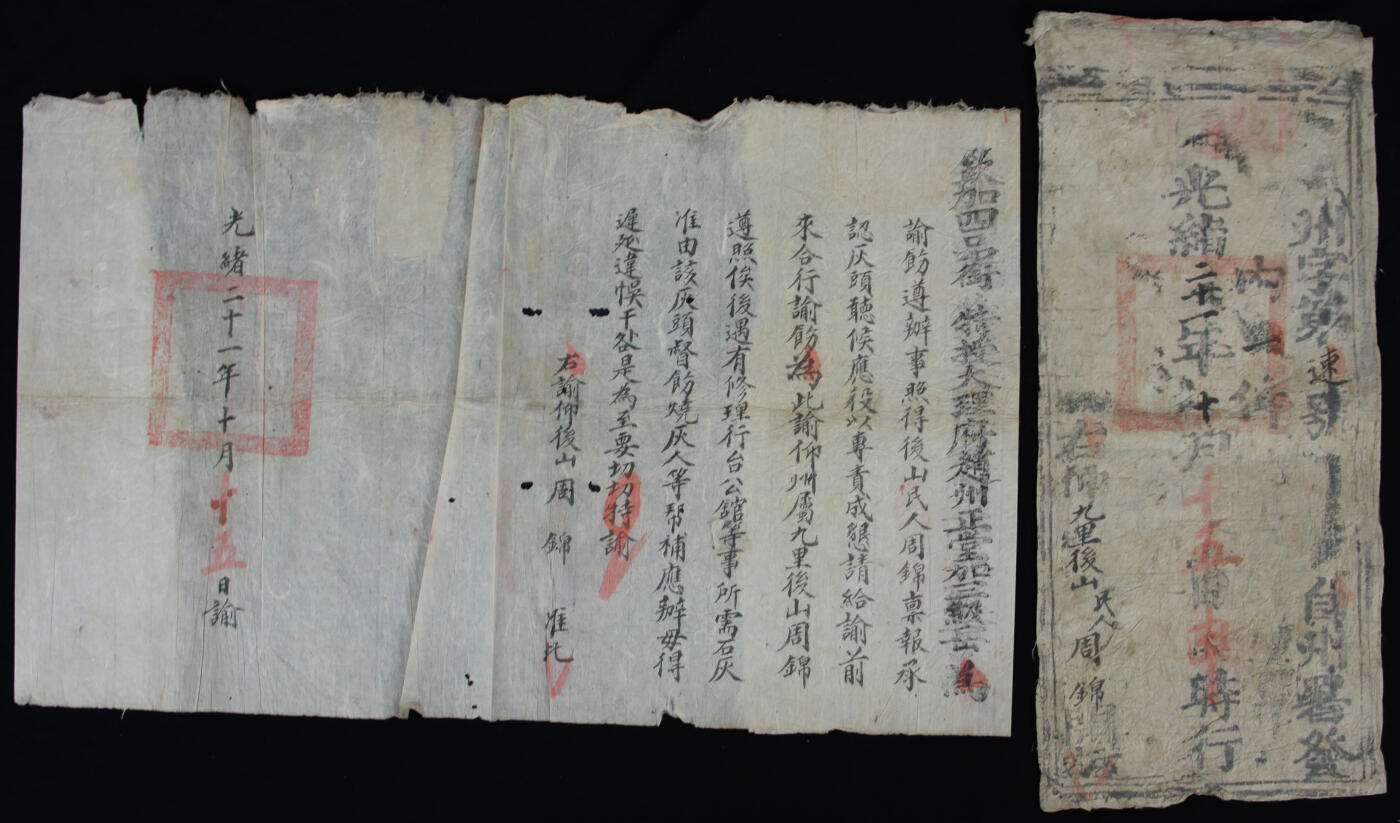 州字第 速號 自州署發
內一件
光緒二十一年十月十五日 時行
右仰九里後山民人周錦 開拆
欽加四品銜特授大理府趙州正堂加三級岳為
諭飭遵辦事照得後山民人周錦稟報承
認灰頭聽候應役以專責成懇請給諭前
來合行諭飭為此諭仰州屬九里後山周錦
遵照俟後遇有修理行台公舘等事所需石灰
准由該灰頭督飭燒灰人等帮補應辦毋得
遲延違悞干咎是為至要切切特諭
右諭仰後山周錦 准此
光緒二十一年十月十五日諭